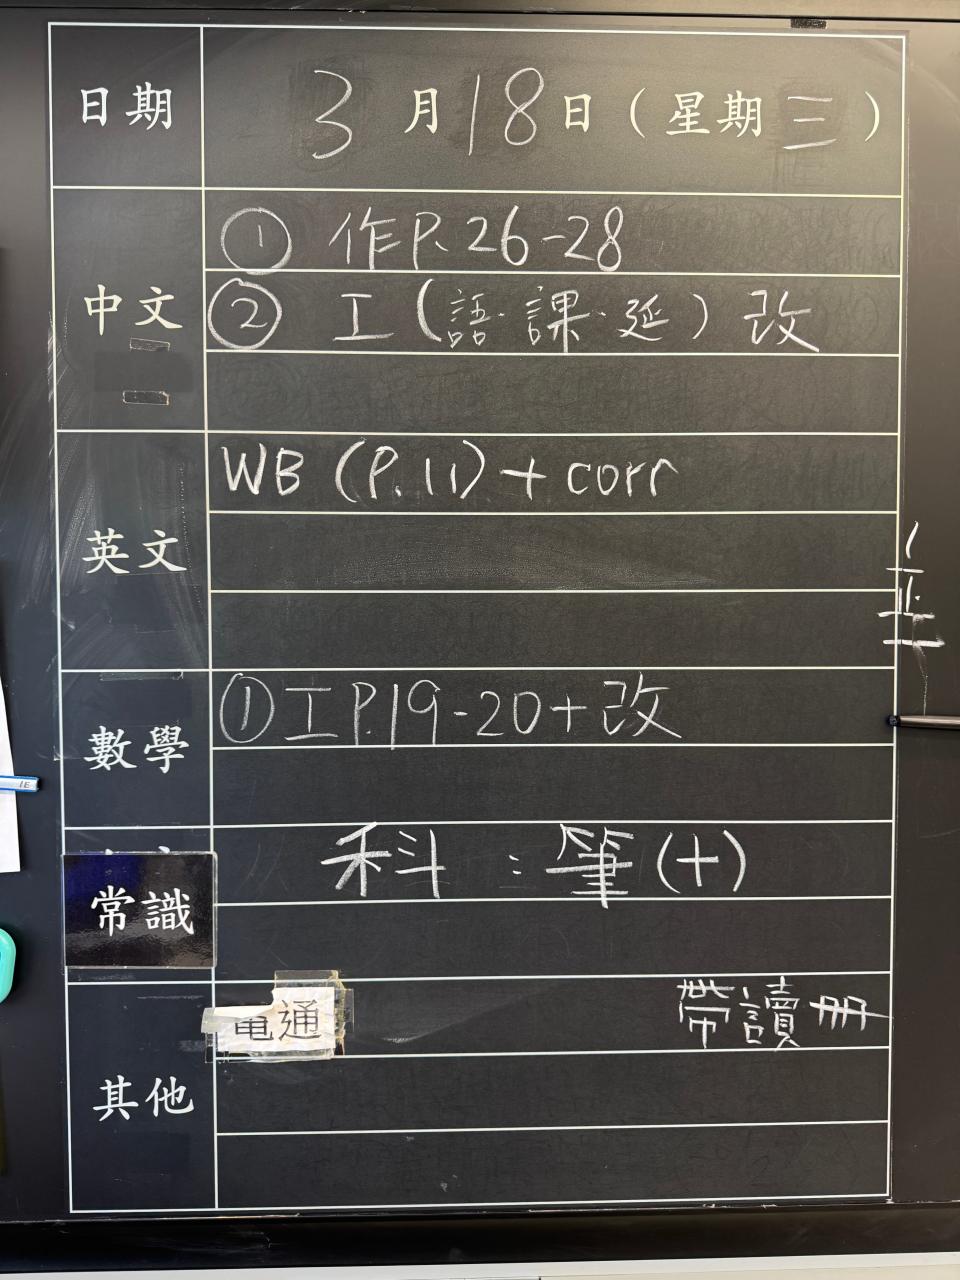 日期 3月18日(星期三)
中文 ① 作P.26-28
② 工(語.課.延)改
英文 WB (P.11) + corr
數學 ①工P.19-20+改
常識 科:筆(十)
其他 電通 帶讀冊
1E